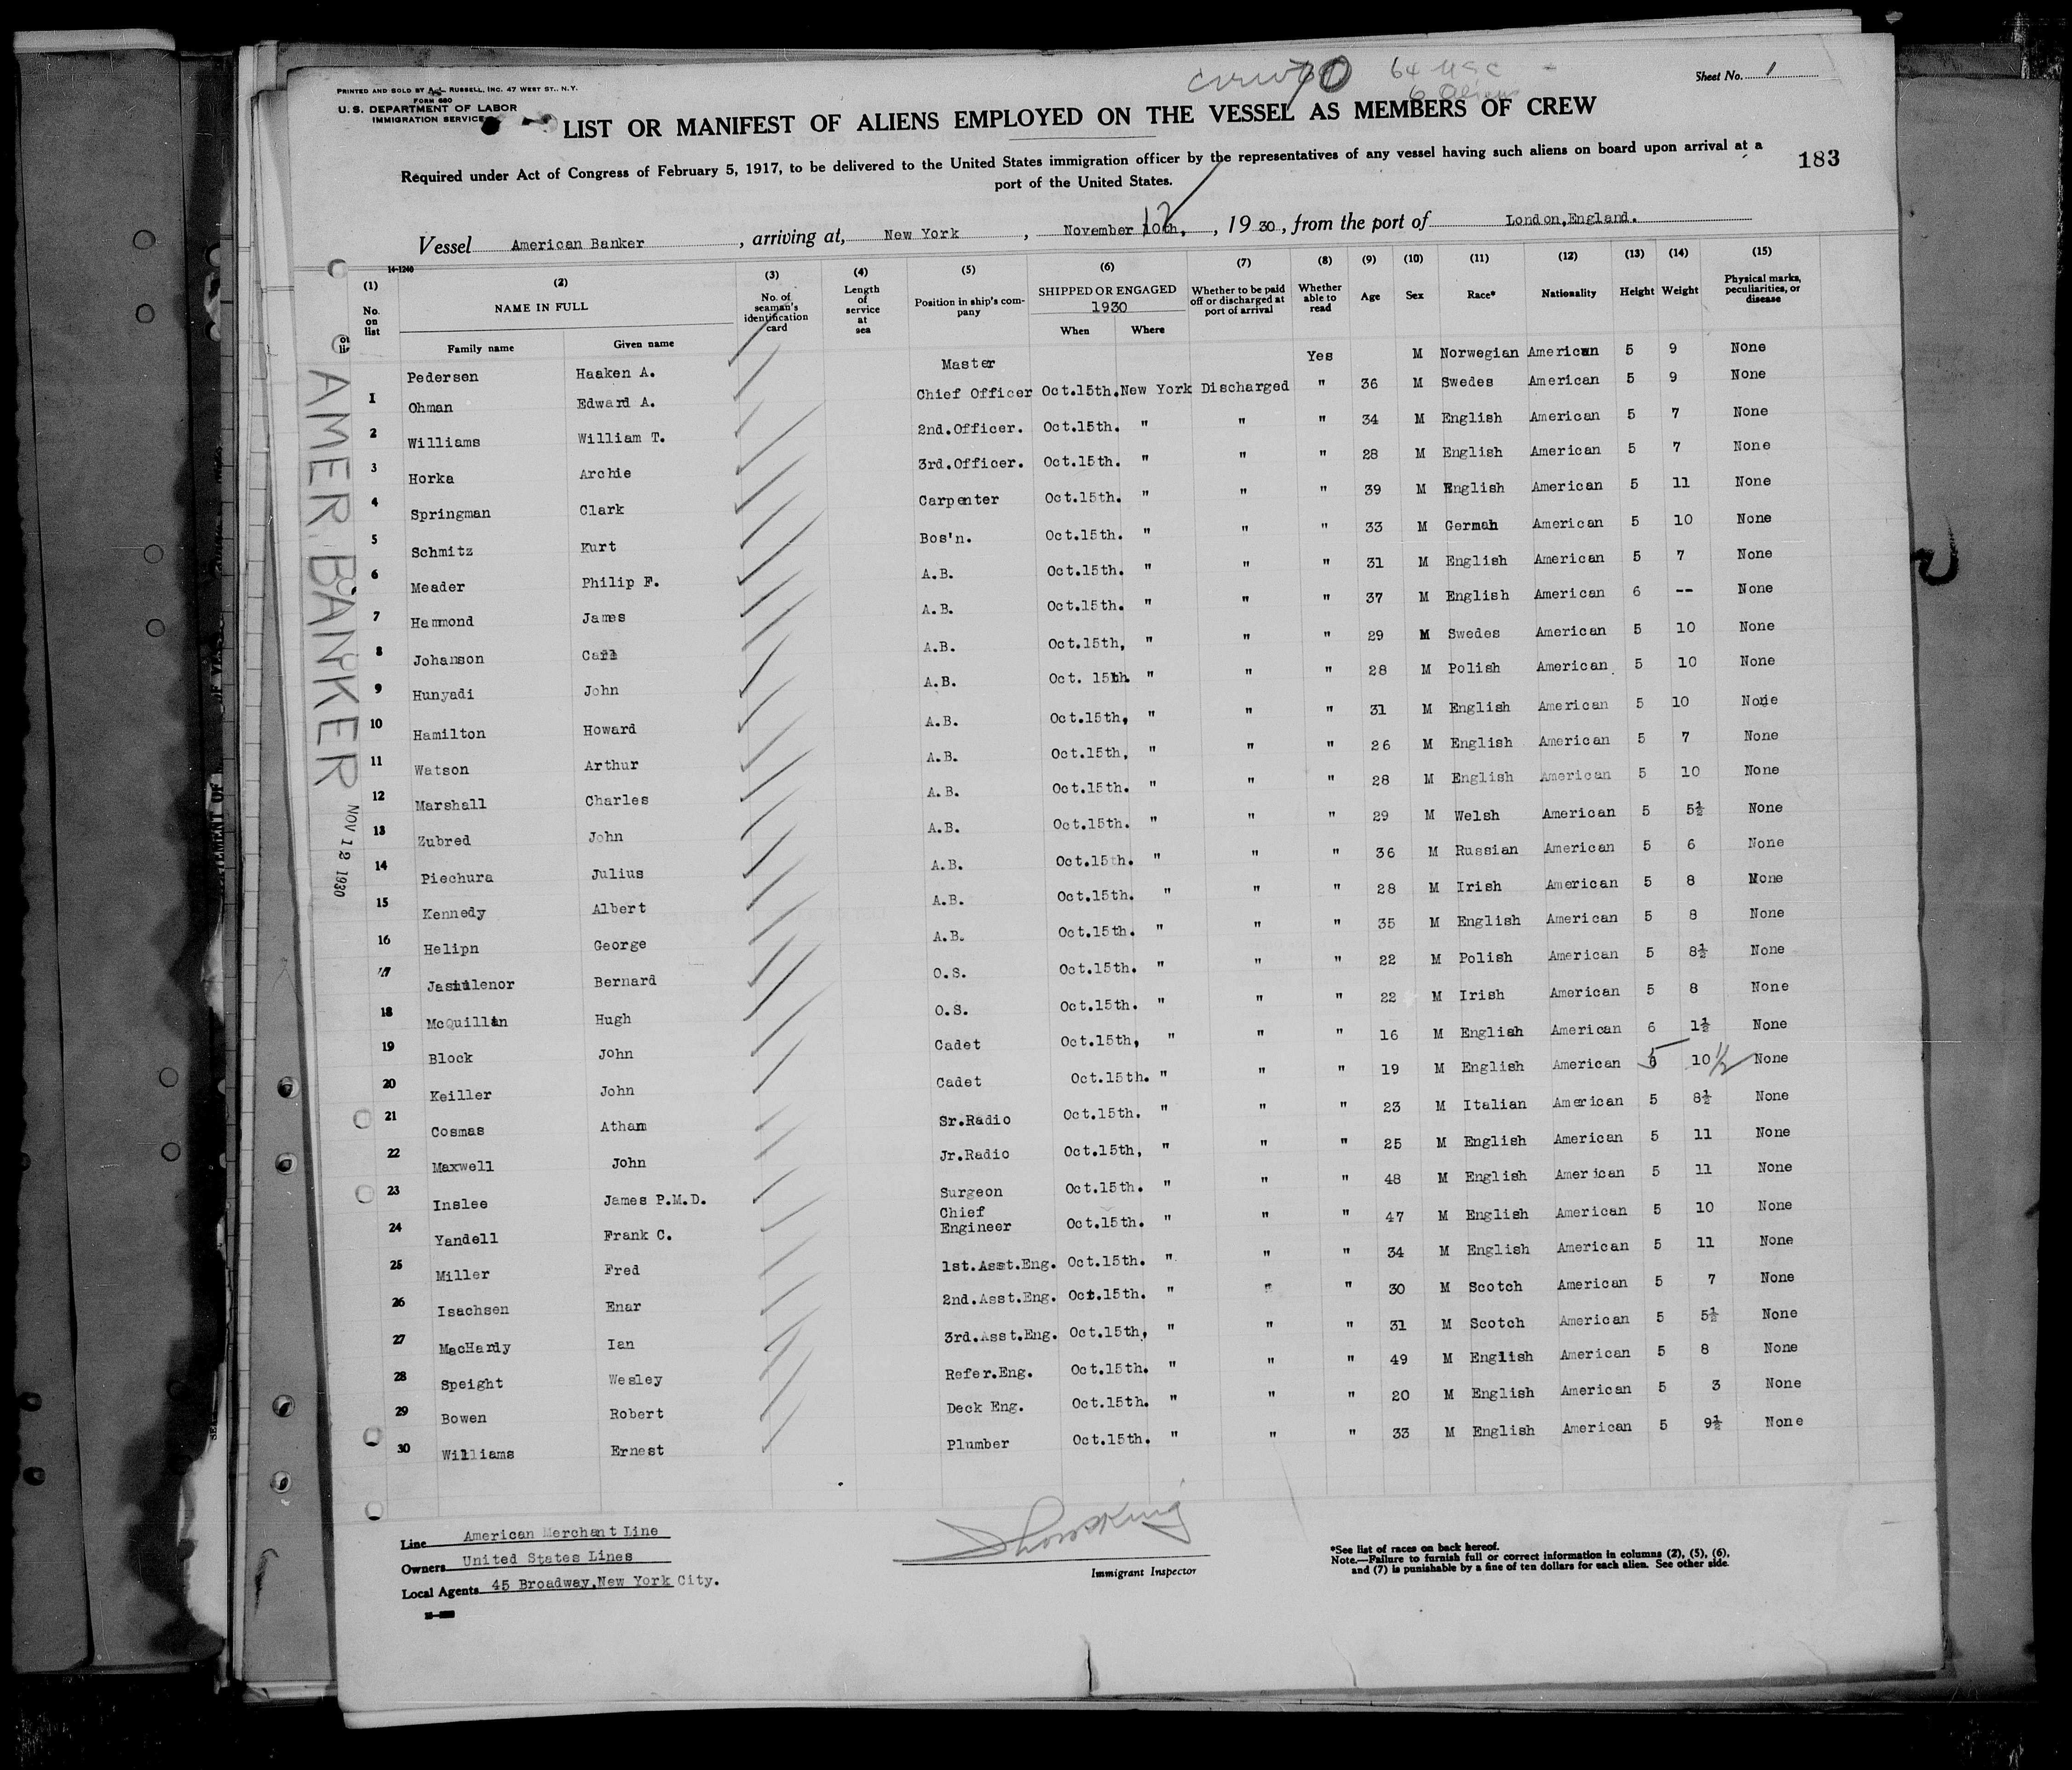 PRINTED AND SOLD BY A. L. RUSSELL, INC. 47 WEST ST., N.Y.
FORM 680
U. S. DEPARTMENT OF LABOR
IMMIGRATION SERVICE
crew 70
64 USC
6 Aliens
Sheet No. 1
LIST OR MANIFEST OF ALIENS EMPLOYED ON THE VESSEL AS MEMBERS OF CREW
183
Required under Act of Congress of February 5, 1917, to be delivered to the United States immigration officer by the representatives of any vessel having such aliens on board upon arrival at a
port of the United States.
Vessel American Banker, arriving at, New York, November 10th, 12, 1930, from the port of London,England.
14-1240
(1) (2) (3) (4) (5) (6) (7) (8) (9) (10) (11) (12) (13) (14) (15)
No. on list NAME IN FULL No. of seaman's identification card Length of service at sea Position in ship's company SHIPPED OR ENGAGED 1930 Whether to be paid off or discharged at port of arrival Whether able to read Age Sex Race* Nationality Height Weight Physical marks, peculiarities, or disease
Family name Given name When Where
Pedersen Haaken A. Master Yes M Norwegian American 5 9 None
1 Ohman Edward A. Chief Officer Oct.15th. New York Discharged " 36 M Swedes American 5 9 None
2 Williams William T. 2nd.Officer. Oct.15th. " " " 34 M English American 5 7 None
3 Horka Archie 3rd.Officer. Oct.15th. " " " 28 M English American 5 7 None
4 Springman Clark Carpenter Oct.15th. " " " 39 M English American 5 11 None
5 Schmitz Kurt Bos'n. Oct.15th. " " " 33 M German American 5 10 None
6 Meader Philip F. A.B. Oct.15th. " " " 31 M English American 5 7 None
7 Hammond James A.B. Oct.15th. " " " 37 M English American 6 -- None
8 Johanson Carl A.B. Oct.15th, " " " 29 M Swedes American 5 10 None
9 Hunyadi John A.B. Oct. 15th. " " " 28 M Polish American 5 10 None
10 Hamilton Howard A.B. Oct.15th, " " " 31 M English American 5 10 None
11 Watson Arthur A.B. Oct.15th, " " " 26 M English American 5 7 None
12 Marshall Charles A.B. Oct.15th. " " " 28 M English American 5 10 None
13 Zubred John A.B. Oct.15th. " " " 29 M Welsh American 5 5½ None
14 Piechura Julius A.B. Oct.15th. " " " 36 M Russian American 5 6 None
15 Kennedy Albert A.B. Oct.15th. " " " 28 M Irish American 5 8 None
16 Helipn George A.B. Oct.15th. " " " 35 M English American 5 8 None
17 Bernard O.S. Oct.15th. " " " 22 M Polish American 5 8½ None
18 McQuillan Hugh O.S. Oct.15th. " " " 22 M Irish American 5 8 None
19 Block John Cadet Oct.15th, " " " 16 M English American 6 1½ None
20 Keiller John Cadet Oct.15th. " " " 19 M English American 5 10 1/2 None
21 Cosmas Atham Sr.Radio Oct.15th. " " " 23 M Italian American 5 8½ None
22 Maxwell John Jr.Radio Oct.15th, " " " 25 M English American 5 11 None
23 Inslee James P.M.D. Surgeon Oct.15th. " " " 48 M English American 5 11 None
24 Yandell Frank C. Chief Engineer Oct.15th. " " " 47 M English American 5 10 None
25 Miller Fred 1st.Asst.Eng. Oct.15th. " " " 34 M English American 5 11 None
26 Isachsen Enar 2nd.Asst.Eng. Oct.15th. " " " 30 M Scotch American 5 7 None
27 MacHardy Ian 3rd.Asst.Eng. Oct.15th, " " " 31 M Scotch American 5 5½ None
28 Speight Wesley Refer.Eng. Oct.15th. " " " 49 M English American 5 8 None
29 Bowen Robert Deck Eng. Oct.15th. " " " 20 M English American 5 3 None
30 Williams Ernest Plumber Oct.15th. " " " 33 M English American 5 9½ None
AMER. BANKER
NOV 12 1930
Line American Merchant Line
Owners United States Lines
Local Agents 45 Broadway,New York City.
Immigrant Inspector
*See list of races on back hereof.
Note.—Failure to furnish full or correct information in columns (2), (5), (6),
and (7) is punishable by a fine of ten dollars for each alien. See other side.